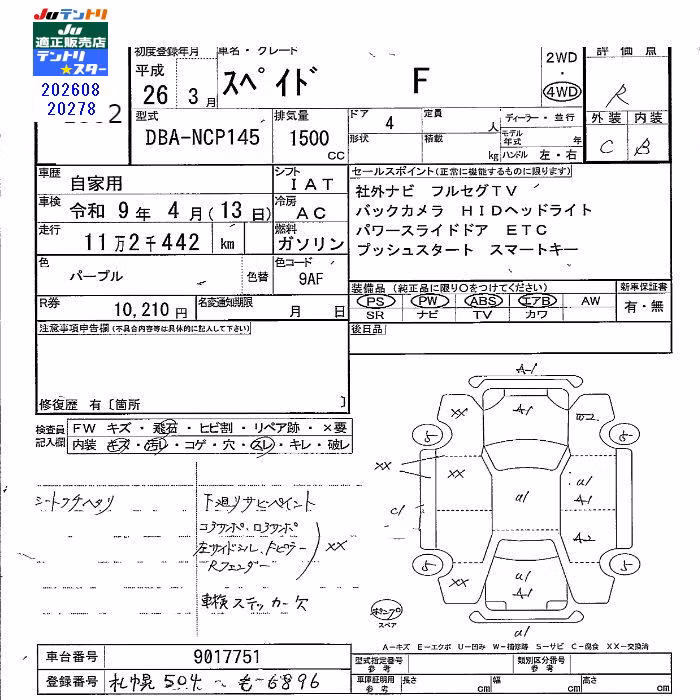 JUテントリ
JU
適正販売店
テントリ
★スター
202608
20278
2
初度登録年月
車名・グレード
2WD
・
4WD
評価点
平成
26年 3月
スペイド F
R
外装 内装
C B
型式
DBA-NCP145
排気量
1500
CC
ドア 4
定員 人
形状
積載 kg
ディーラー・並行
モデル年式 年
ハンドル 左・右
車歴 自家用
シフト IAT
車検 令和 9年 4月(13日)
冷房 AC
走行 11万2千442 km
燃料 ガソリン
色 パープル
色替
色コード 9AF
R券 10,210円
名変通知期限 月 日
セールスポイント(正常に機能するものに限ります)
社外ナビ フルセグTV
バックカメラ HIDヘッドライト
パワースライドドア ETC
プッシュスタート スマートキー
装備品(純正品に限り○をつけてください)
新車保証書
PS PW ABS エアB AW
有・無
SR ナビ TV カワ
後日品
注意事項申告欄(不具合内容等は具体的に記入して下さい)
修復歴 有〔箇所 〕
検査員記入欄
FW キズ・飛石・ヒビ割・リペア跡・×要
内装 キズ・汚レ・コゲ・穴・スレ・キレ・破レ
シートフチヘタリ
下廻りサビペイント
左サイドシル、Fピラー
Rフェンダー
XX
車検ステッカー欠
A-1
XX A-1 W-2
5 5
XX XX U1
C1 U1 A-1
A-2
5 5
XX U1 A-1
U1
ポンプ
スペア
A-キズ E-エクボ U-凹み W-補修跡 S-サビ C-腐食 XX-交換済
車台番号 9017751
型式指定番号 参考
類別区分番号 参考
登録番号 札幌504 も-6896
車庫証明用 参考
長さ cm 幅 cm 高さ cm